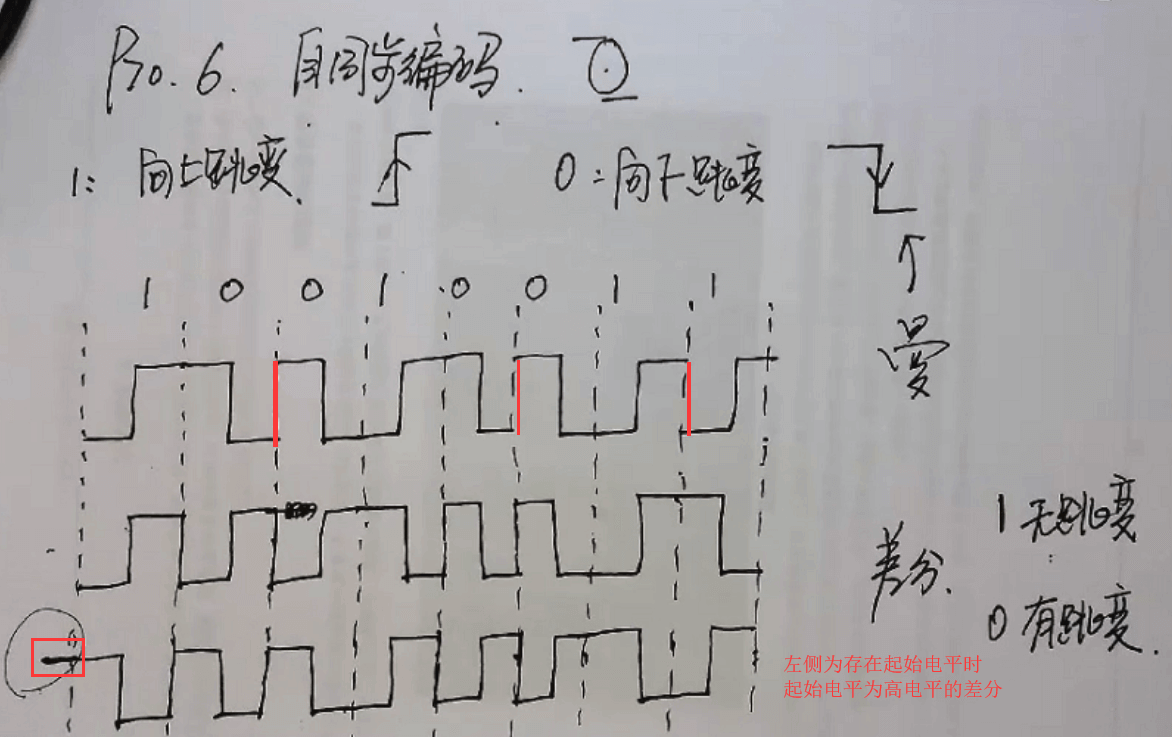 Pro. 6. 自同步编码.
1: 向上跳变. 0: 向下跳变
1 0 0 1 0 0 1 1
曼
差分.
1 无跳变
0 有跳变.
左侧为存在起始电平时
起始电平为高电平的差分